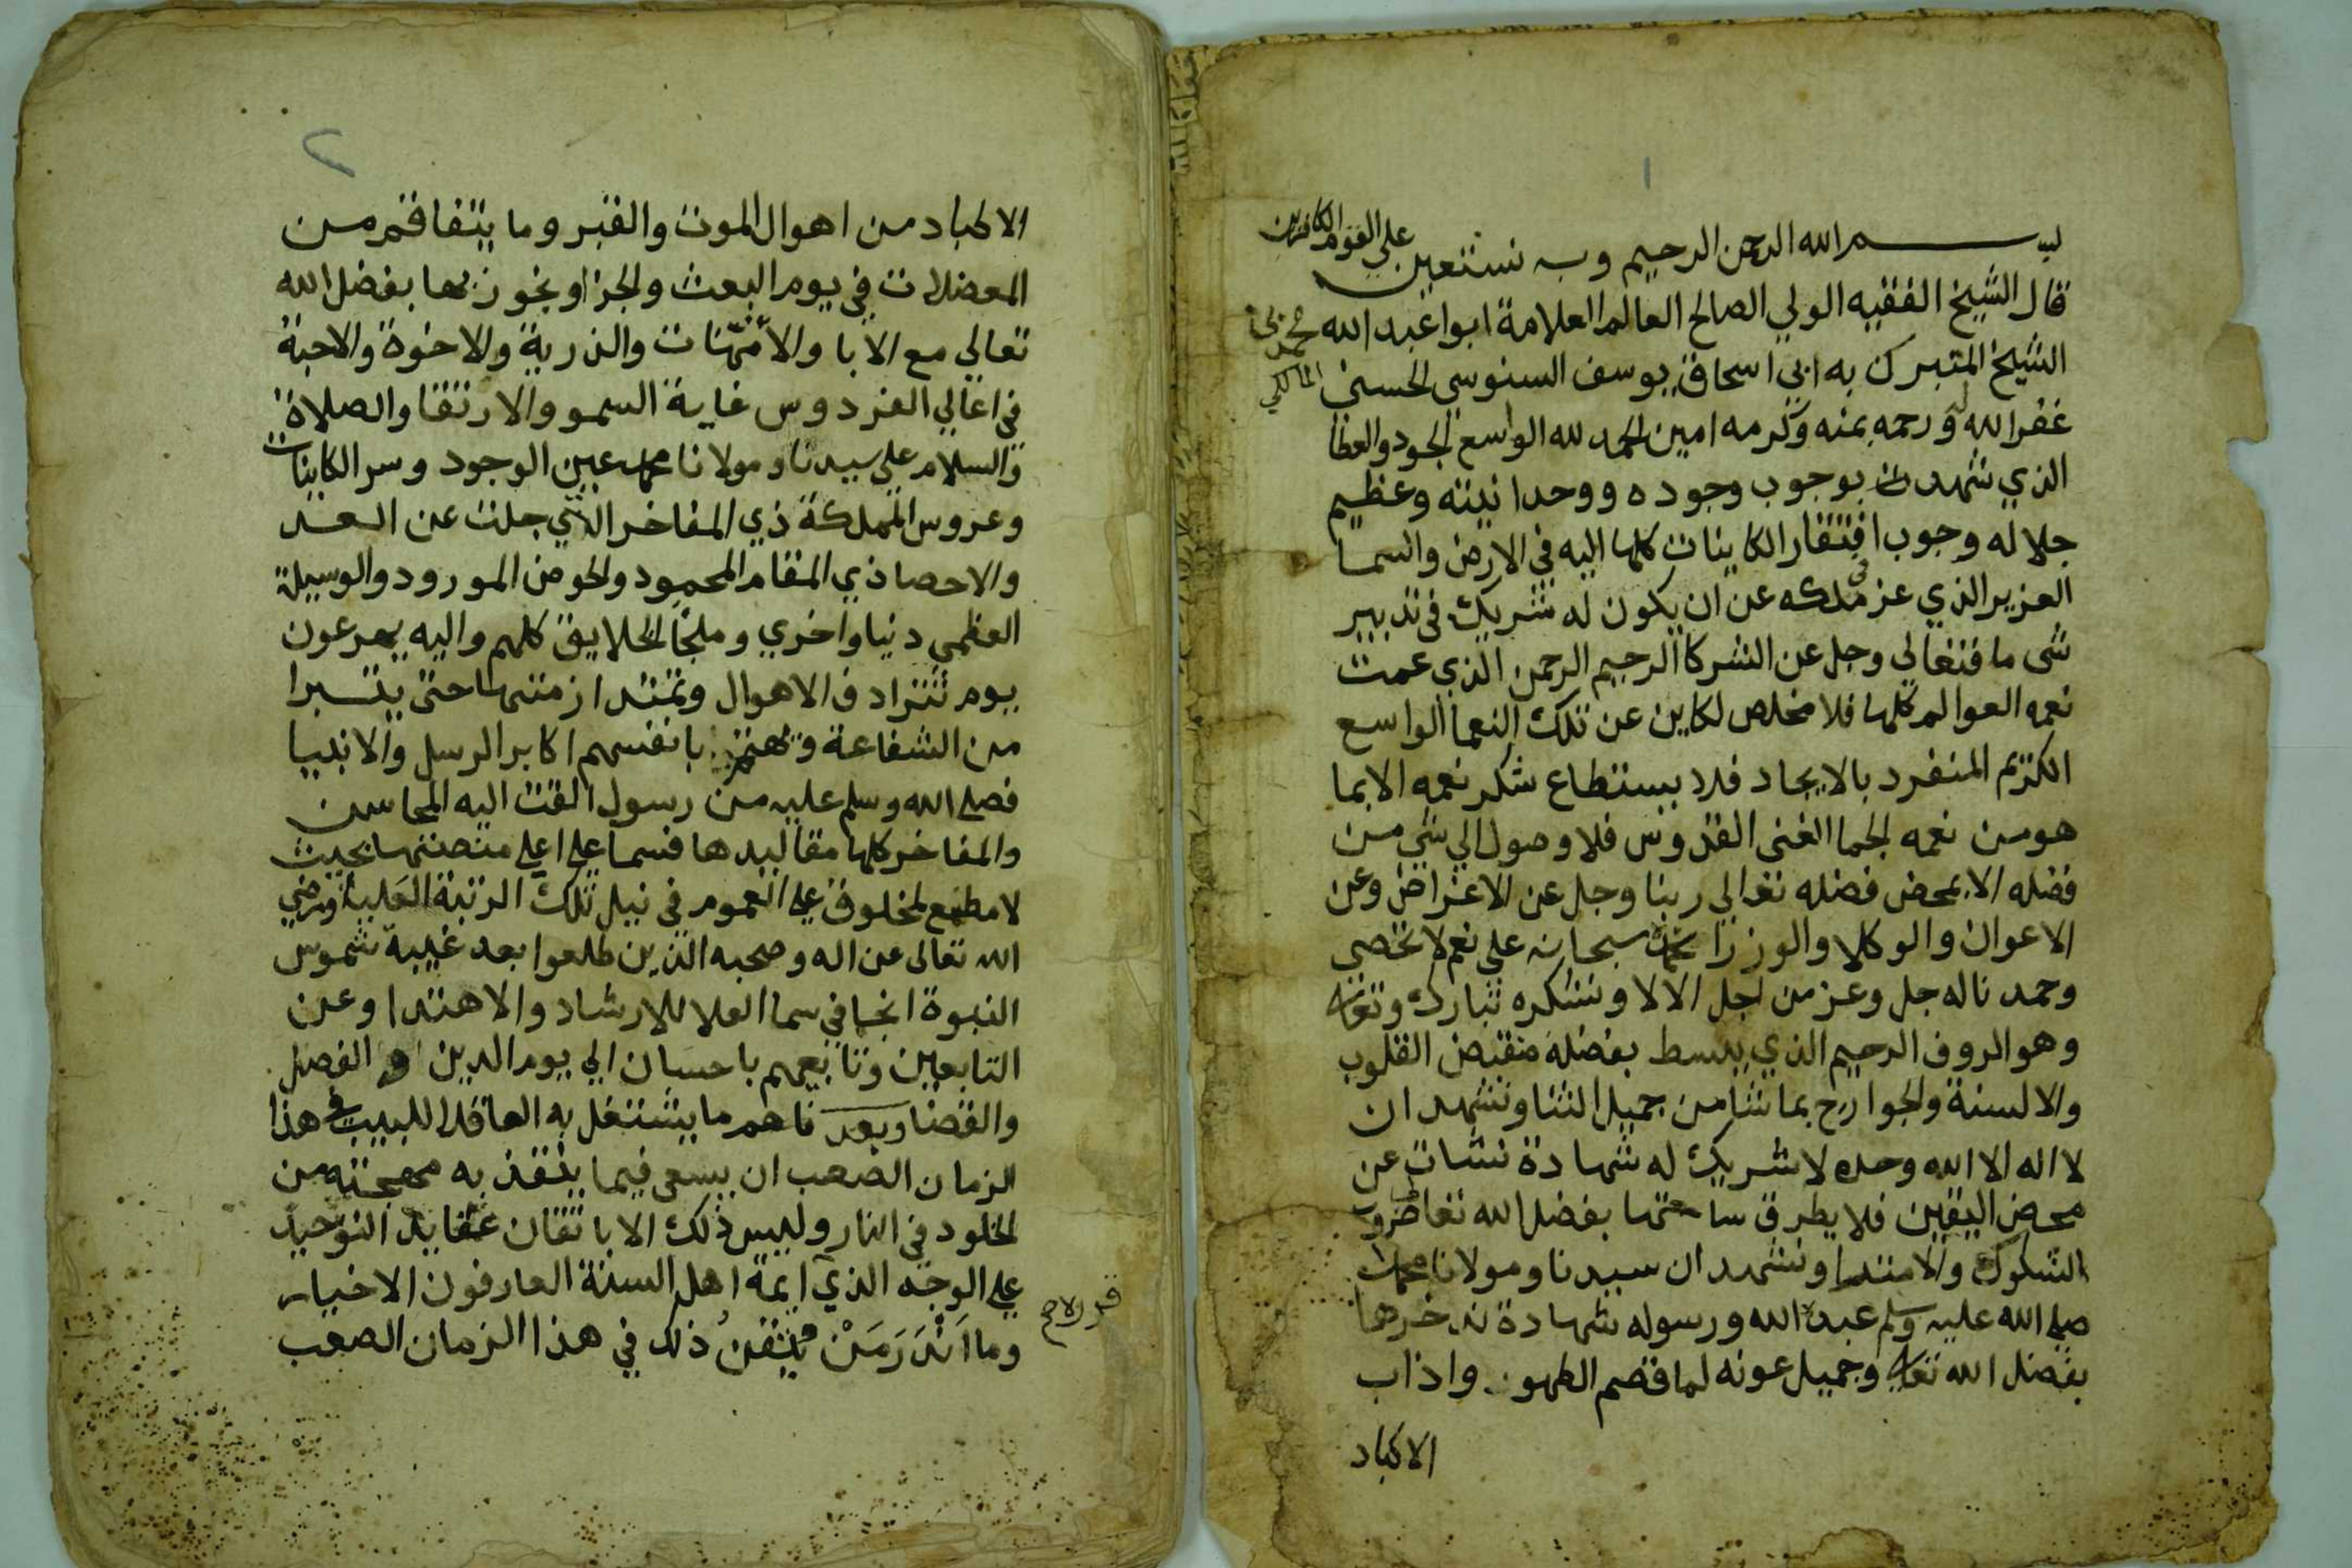 ١
بسم الله الرحمن الرحيم وبه نستعين علي القوم الكافرين
قال الشيخ الفقيه الولي الصالح العالم العلامة ابوا عبد الله محمد بن
الشيخ المتبرك به ابي اسحاق يوسف السنوسي الحسني المالكي
غفر الله له ورحمه بمنه وكرمه امين الحمد لله الواسع الجود والعطا
الذي شهدت بوجوب وجوده ووحدانيته وعظيم
جلاله وجوب افتقار الكاينات كلها اليه في الارض والسما
العزيز الذي عز في ملكه عن ان يكون له شريك في تدبير
شي ما فتعالي وجل عن الشركا الرحيم الرحمن الذي عمت
نعمه العوالم كلها فلا مخلص لكاين عن تلك النعما الواسع
الكريم المنفرد بالايجاد فلا يستطاع شكر نعمه الا بما
هو من نعمه الجما الغني القدوس فلا وصول الي شي من
فضله الا بمحض فضله تعالي ربنا وجل عن الاغراض وعن
الاعوان والوكلا والوزرا نحمده سبحانه علي نعم لا تحصي
وحمدنا له جل وعز من اجل الالا ونشكره تبارك وتعالي
وهو الروف الرحيم الذي يبسط بفضله منقبض القلوب
والالسنة والجوارح بما شا من جميل الثنا ونشهد ان
لا اله الا الله وحده لا شريك له شهادة نشات عن
محض اليقين فلا يطرق ساحتها بفضل الله تعا ضروب
الشكوك والامتدا ونشهد ان سيدنا ومولانا محمدا
صلي الله عليه وسلم عبده الله ورسوله شهادة ندخرها
بفضل الله تعالي وجميل عونه لما قصم الظهور واذاب
الاكباد
٢
الاكباد من اهوال الموت والقبر وما يتفاقم من
المعضلات في يوم البعث والجزا ونحوز بها بفضل الله
تعالي مع الابا والامهات والذرية والاخوة والاحبة
في اعالي الفردوس غاية السمو والارتقا والصلاة
والسلام علي سيدنا ومولانا محمد عين الوجود وسر الكاينات
وعروس المملكة ذي المفاخر التي جلت عن العد
والاحصا ذي المقام المحمود والحوض المورود والوسيلة
العظمي دنيا واخري وملجا الخلايق كلهم واليه يهرعون
يوم تترادف الاهوال وتمتد ازمنتها حتي يتبرا
من الشفاعة وتهتم بانفسهم اكابر الرسل والانبيا
فصلي الله وسلم عليه من رسول القت اليه المحاسن
والمفاخر كلها مقاليدها فسما علي اعلي منصتها بحيث
لا مطمع لمخلوق علي العموم في نيل تلك الرتبة العليا ورضي
الله تعالي عن اله وصحبه الذين طلعوا بعد غيبة شموس
النبوة انجما في سما العلا للارشاد والاهتدا وعن
التابعين وتابعيهم باحسان الي يوم الدين والفصل
والقضا وبعد فاهم ما يشتغل به العاقل اللبيب في هذا
الزمان الصعب ان يسعي فيما ينقذ به مهجته من
الخلود في النار وليس ذلك الا باتقان عقايد التوحيد
علي الوجه الذي ايمة اهل السنة العارفون الاخيار
وما اندر من يتقن ذلك في هذا الزمان الصعب